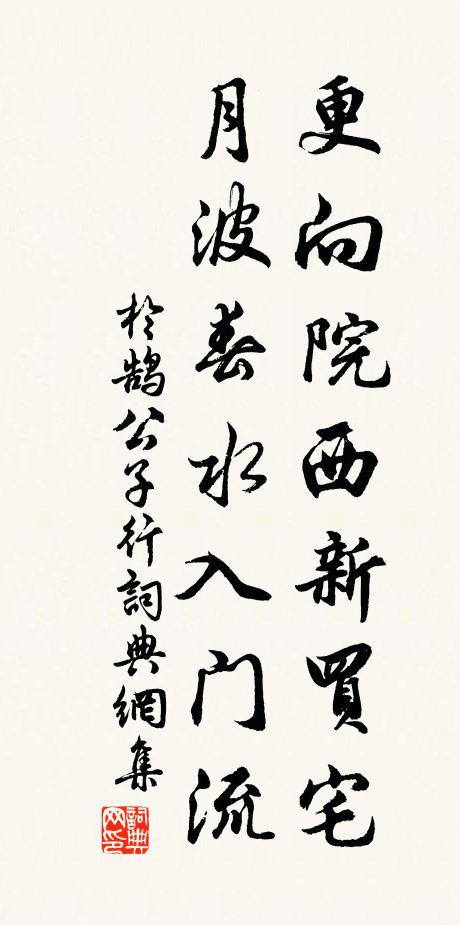 更向院西新買宅
月波春水入门流
於鹄公子行詞典網集
詞典網印